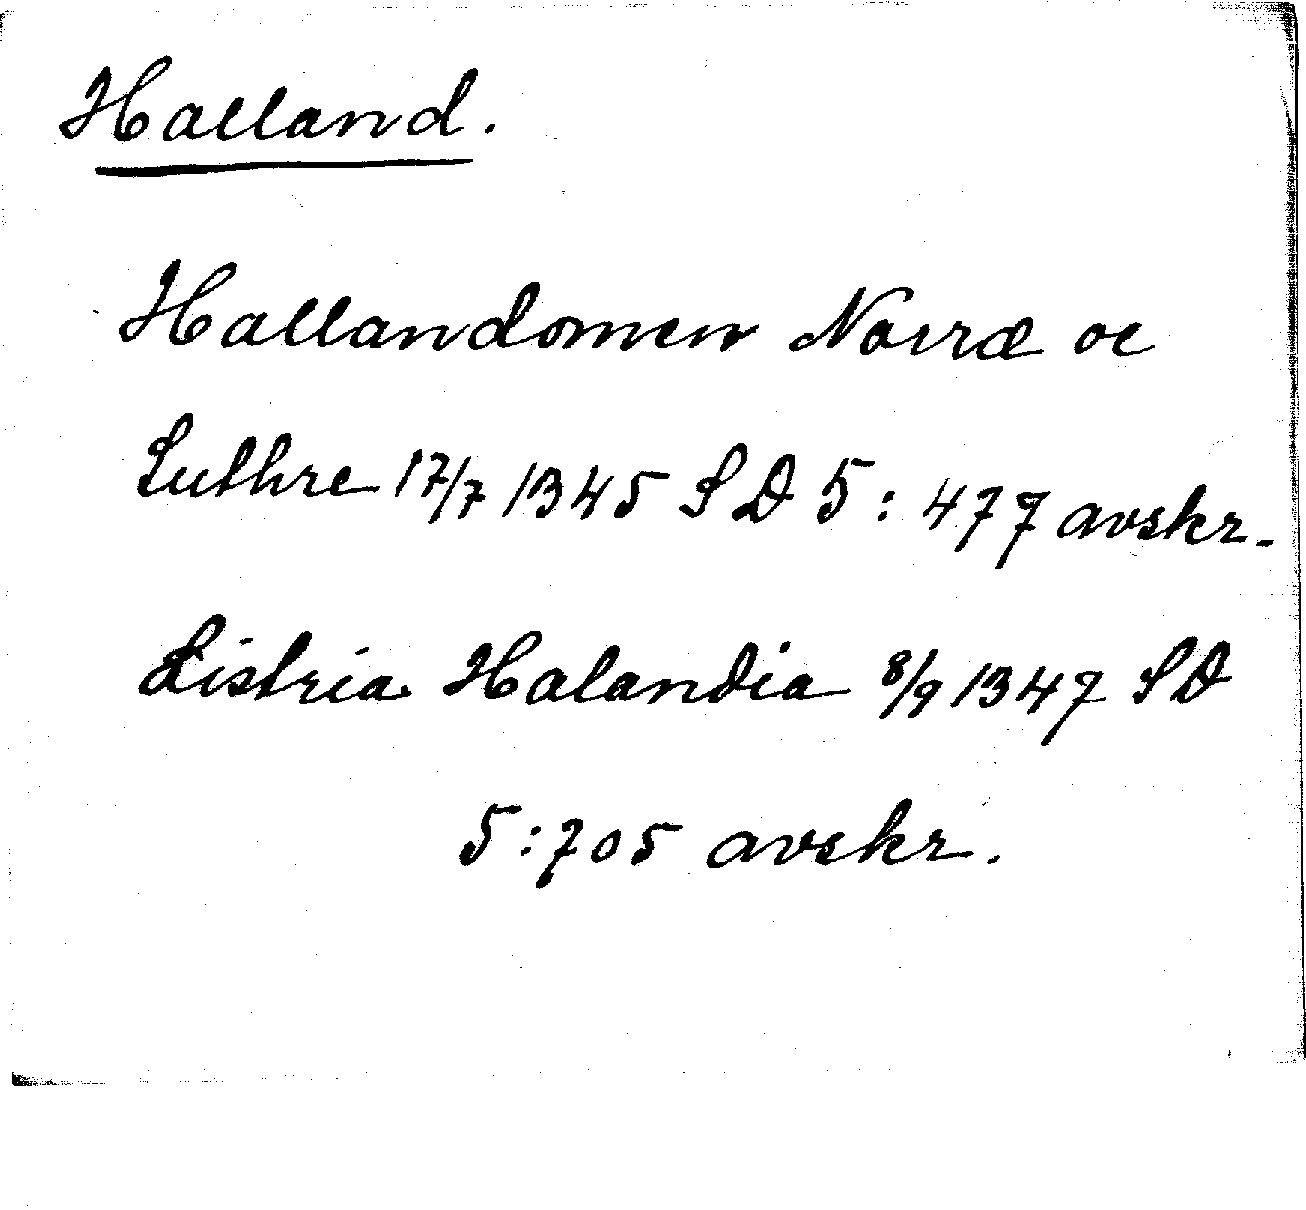 Halland.
Hallandomen Norræ oc
Suthre 17/7 1345 SD 5: 477 avskr.
Listria Halandia 8/9 1347 SD
5:705 avskr.